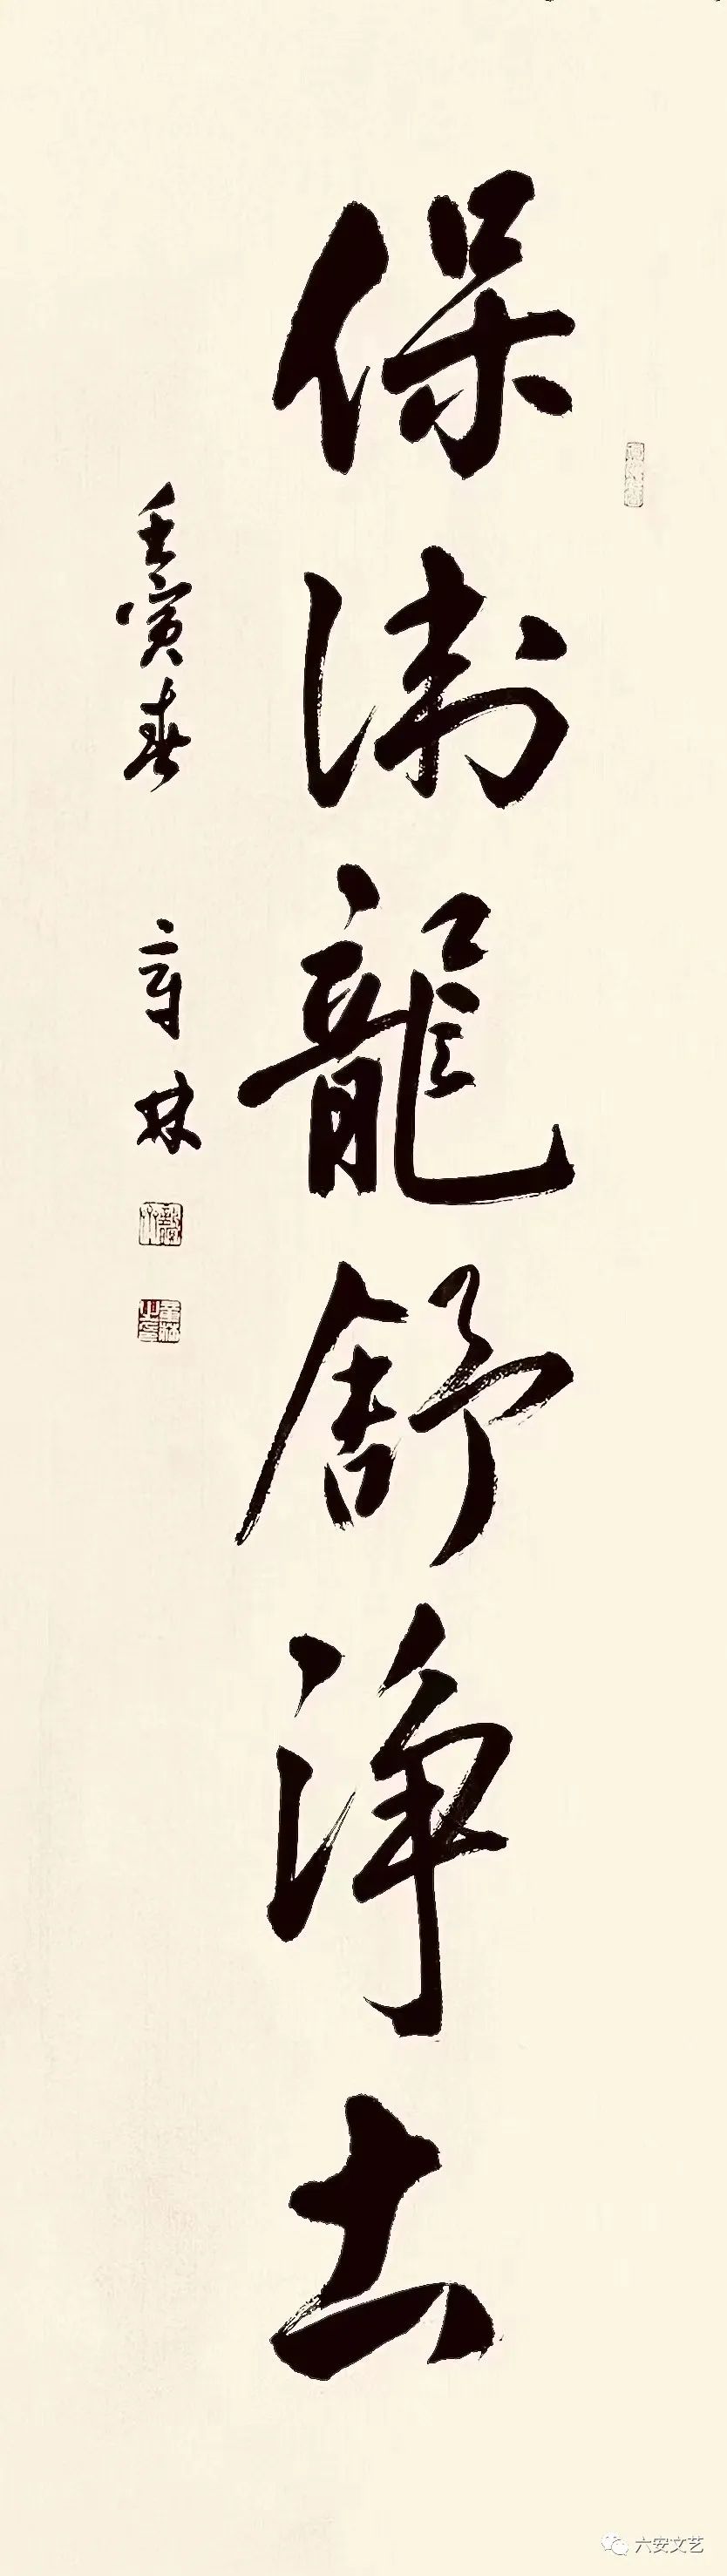 保衛龍舒淨土
壬寅春 章林
六安文艺